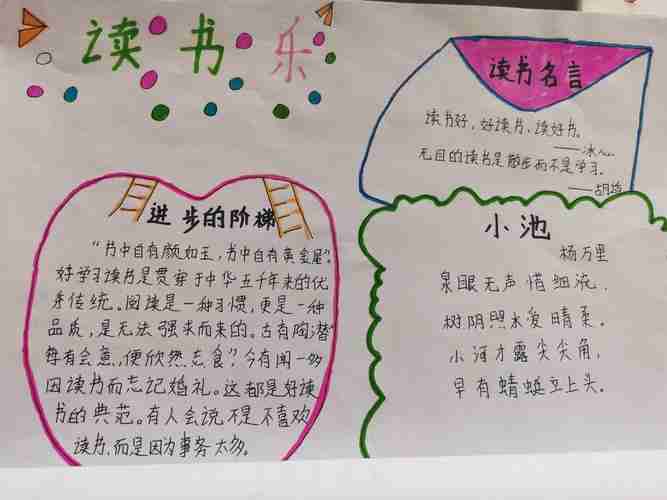 读书乐
进步的阶梯
"书中自有颜如玉,书中自有黄金屋"。
好学习读书是贯穿于中华五千年来的优
秀传统。阅读是一种习惯,更是一种
品质,是无法强求而来的。古有陶潜"
每有会意,便欣然忘食"?今有闻一多
因读书而忘记婚礼。这都是好读
书的典范。有人会说不是不喜欢
读书,而是因为事务太多。
读书名言
读书好,好读书,读好书。
——冰心
无目的读书是散步而不是学习。
小池
杨万里
泉眼无声惜细流,
树阴照水爱晴柔。
小河才露尖尖角,
早有蜻蜓立上头。